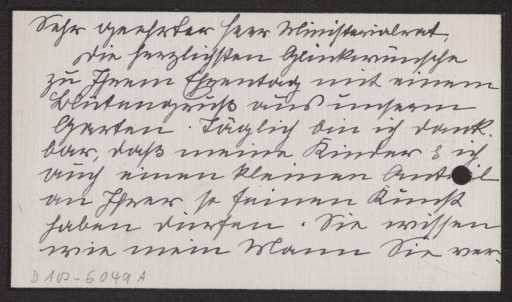 Sehr geehrter Herr Ministerialrat,
die herzlichsten Glückwünsche
zu Ihrem Ehrentag mit einem
Blütengruß aus unserm
Garten. Täglich bin ich dank-
bar, daß meine Kinder & ich
auch einen kleinen Anteil
an Ihrer so feinen Kunst
haben dürfen. Sie wissen
wie mein Mann Sie ver-
D 102-6049 A